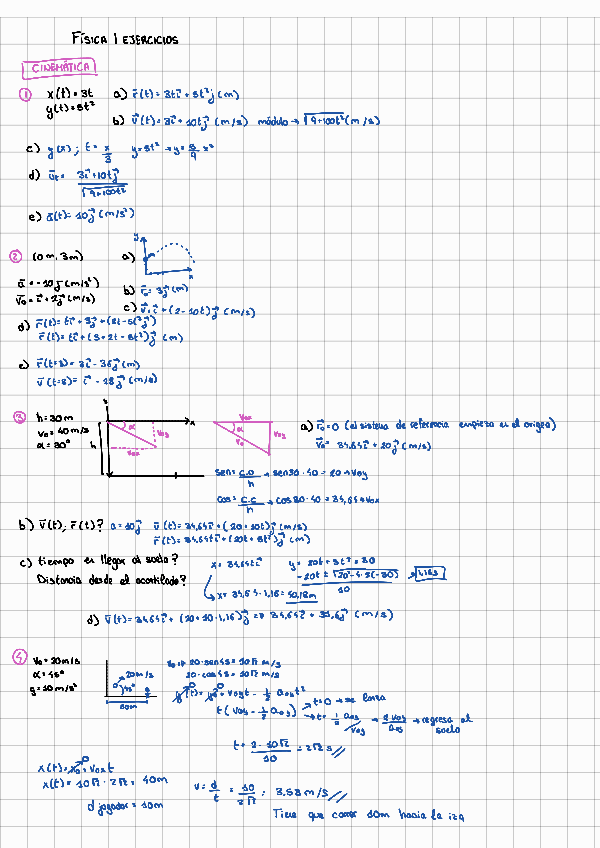 FÍSICA I EJERCICIOS
CINEMÁTICA
① x(t) = 3t a) r⃗(t) = 3t i⃗ + 5t² j⃗ (m)
y(t) = 5t²
b) v⃗(t) = 3i⃗ + 10t j⃗ (m/s) módulo → √9+100t² (m/s)
c) y(x); t = x/3 y = 5t² → y = 5/9 x²
d) u⃗t = 3i⃗ + 10t j⃗ / √9+100t²
e) a⃗(t) = 10 j⃗ (m/s²)
② (0 m, 3m) a) y x
a⃗ = -10 j⃗ (m/s²)
v⃗₀ = i⃗ + 2j⃗ (m/s)
b) r⃗₀ = 3j⃗ (m)
c) v⃗ = i⃗ + (2 - 10t) j⃗ (m/s)
d) r⃗(t) = t i⃗ + 3j⃗ + (2t - 5t² j⃗)
r⃗(t) = t i⃗ + (3 + 2t - 5t²) j⃗ (m)
e) r⃗(t=3) = 3i⃗ - 36j⃗ (m)
v⃗(t=3) = i⃗ - 28j⃗ (m/s)
③ h = 30m
v₀ = 40 m/s
α = 30°
h x α v₀y v₀x
v₀x α v₀ v₀y
a) r⃗₀ = 0 (el sistema de referencia empieza en el origen)
v⃗₀ = 34,64i⃗ + 20j⃗ (m/s)
sen = c.o/h → sen30 · 40 = 20 → v₀y
cos = c.c/h → cos30 · 40 = 34,64 → v₀x
b) v⃗(t), r⃗(t)? a = 10j⃗ v⃗(t) = 34,64i⃗ + (20 + 10t) j⃗ (m/s)
r⃗(t) = 34,64t i⃗ + (20t + 5t²) j⃗ (m)
c) tiempo en llegar al suelo? x = 34,64t i⃗ y = 20t + 5t² = 30
Distancia desde el acantilado? -20t ± √20² - 4·5(-30) / 10 → 1,16s
↳ x = 34,64 · 1,16 = 40,18m
d) v⃗(t) = 34,64i⃗ + (20 + 10 · 1,16) j⃗ ⇒ 34,64i⃗ + 31,6j⃗ (m/s)
④ v₀ = 20m/s
α = 45°
g = 10 m/s²
20m/s
45°
50m
v₀ ⇒ 20·sen45 = 10√2 m/s
20·cos45 = 10√2 m/s
y(t) = y₀ + v₀y t - 1/2 a₀s t²
t (v₀y - 1/2 a₀s) → t = 0 → se lanza
→ t = 1/2 a₀s / v₀y → 2 v₀y / a₀s → regresa al suelo
t = 2 · 10√2 / 10 = 2√2 s
x(t) = x₀ + v₀x t
x(t) = 10√2 · 2√2 = 40m
v = d/t = 10 / 2√2 = 3,53 m/s
d jugador = 10m
Tiene que correr 10m hacia la izq